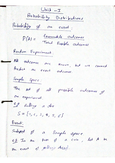 Unit - I
Probability Distributions
Probability of an event
P(A) = Favourable outcomes
Total Possible outcomes
Random Experiment
outcomes are known but we cannot
Predict an exact outcome
Sample Space
The set of all possible outcomes of
an experiment
rolling a die
S = {1, 2, 3, 4, 5, 6}
Event
Subset of a Sample Space
the event of